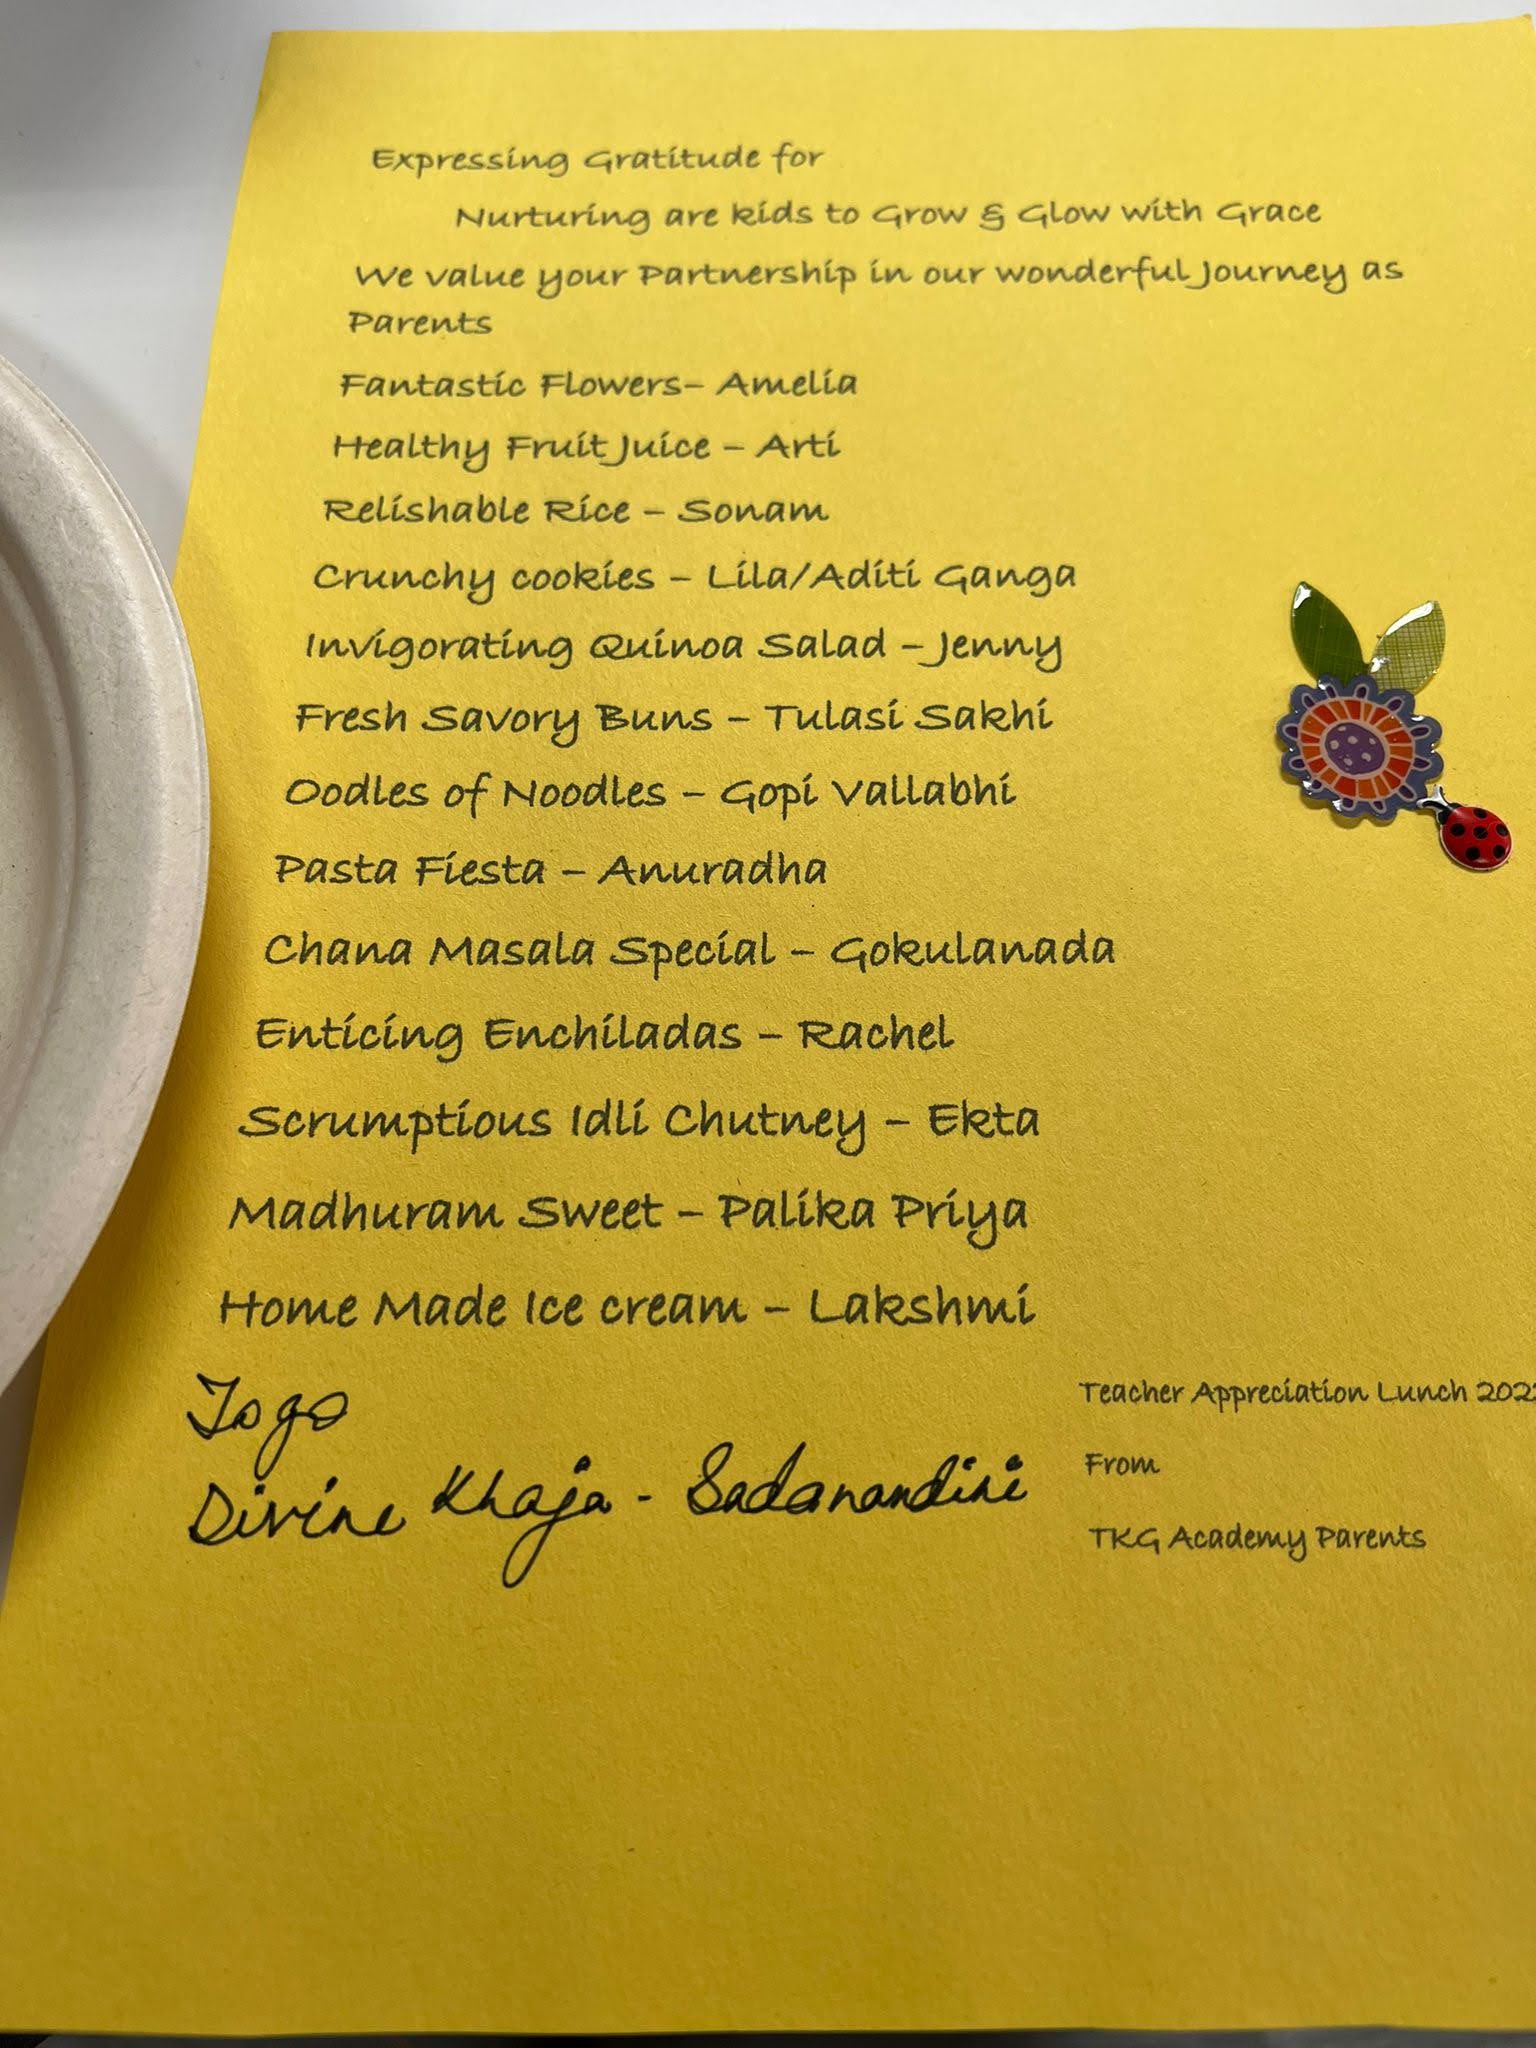 Expressing Gratitude for
Nurturing are kids to Grow & Glow with Grace
We value your Partnership in our wonderful Journey as
Parents
Fantastic Flowers– Amelia
Healthy Fruit Juice – Arti
Relishable Rice – Sonam
Crunchy cookies – Lila/Aditi Ganga
Invigorating Quinoa Salad – Jenny
Fresh Savory Buns – Tulasi Sakhi
Oodles of Noodles – Gopi Vallabhi
Pasta Fiesta – Anuradha
Chana Masala Special – Gokulanada
Enticing Enchiladas – Rachel
Scrumptious Idli Chutney – Ekta
Madhuram Sweet – Palika Priya
Home Made Ice cream – Lakshmi
Togo
Divine Khaja - Sadanandini
Teacher Appreciation Lunch
From
TKG Academy Parents